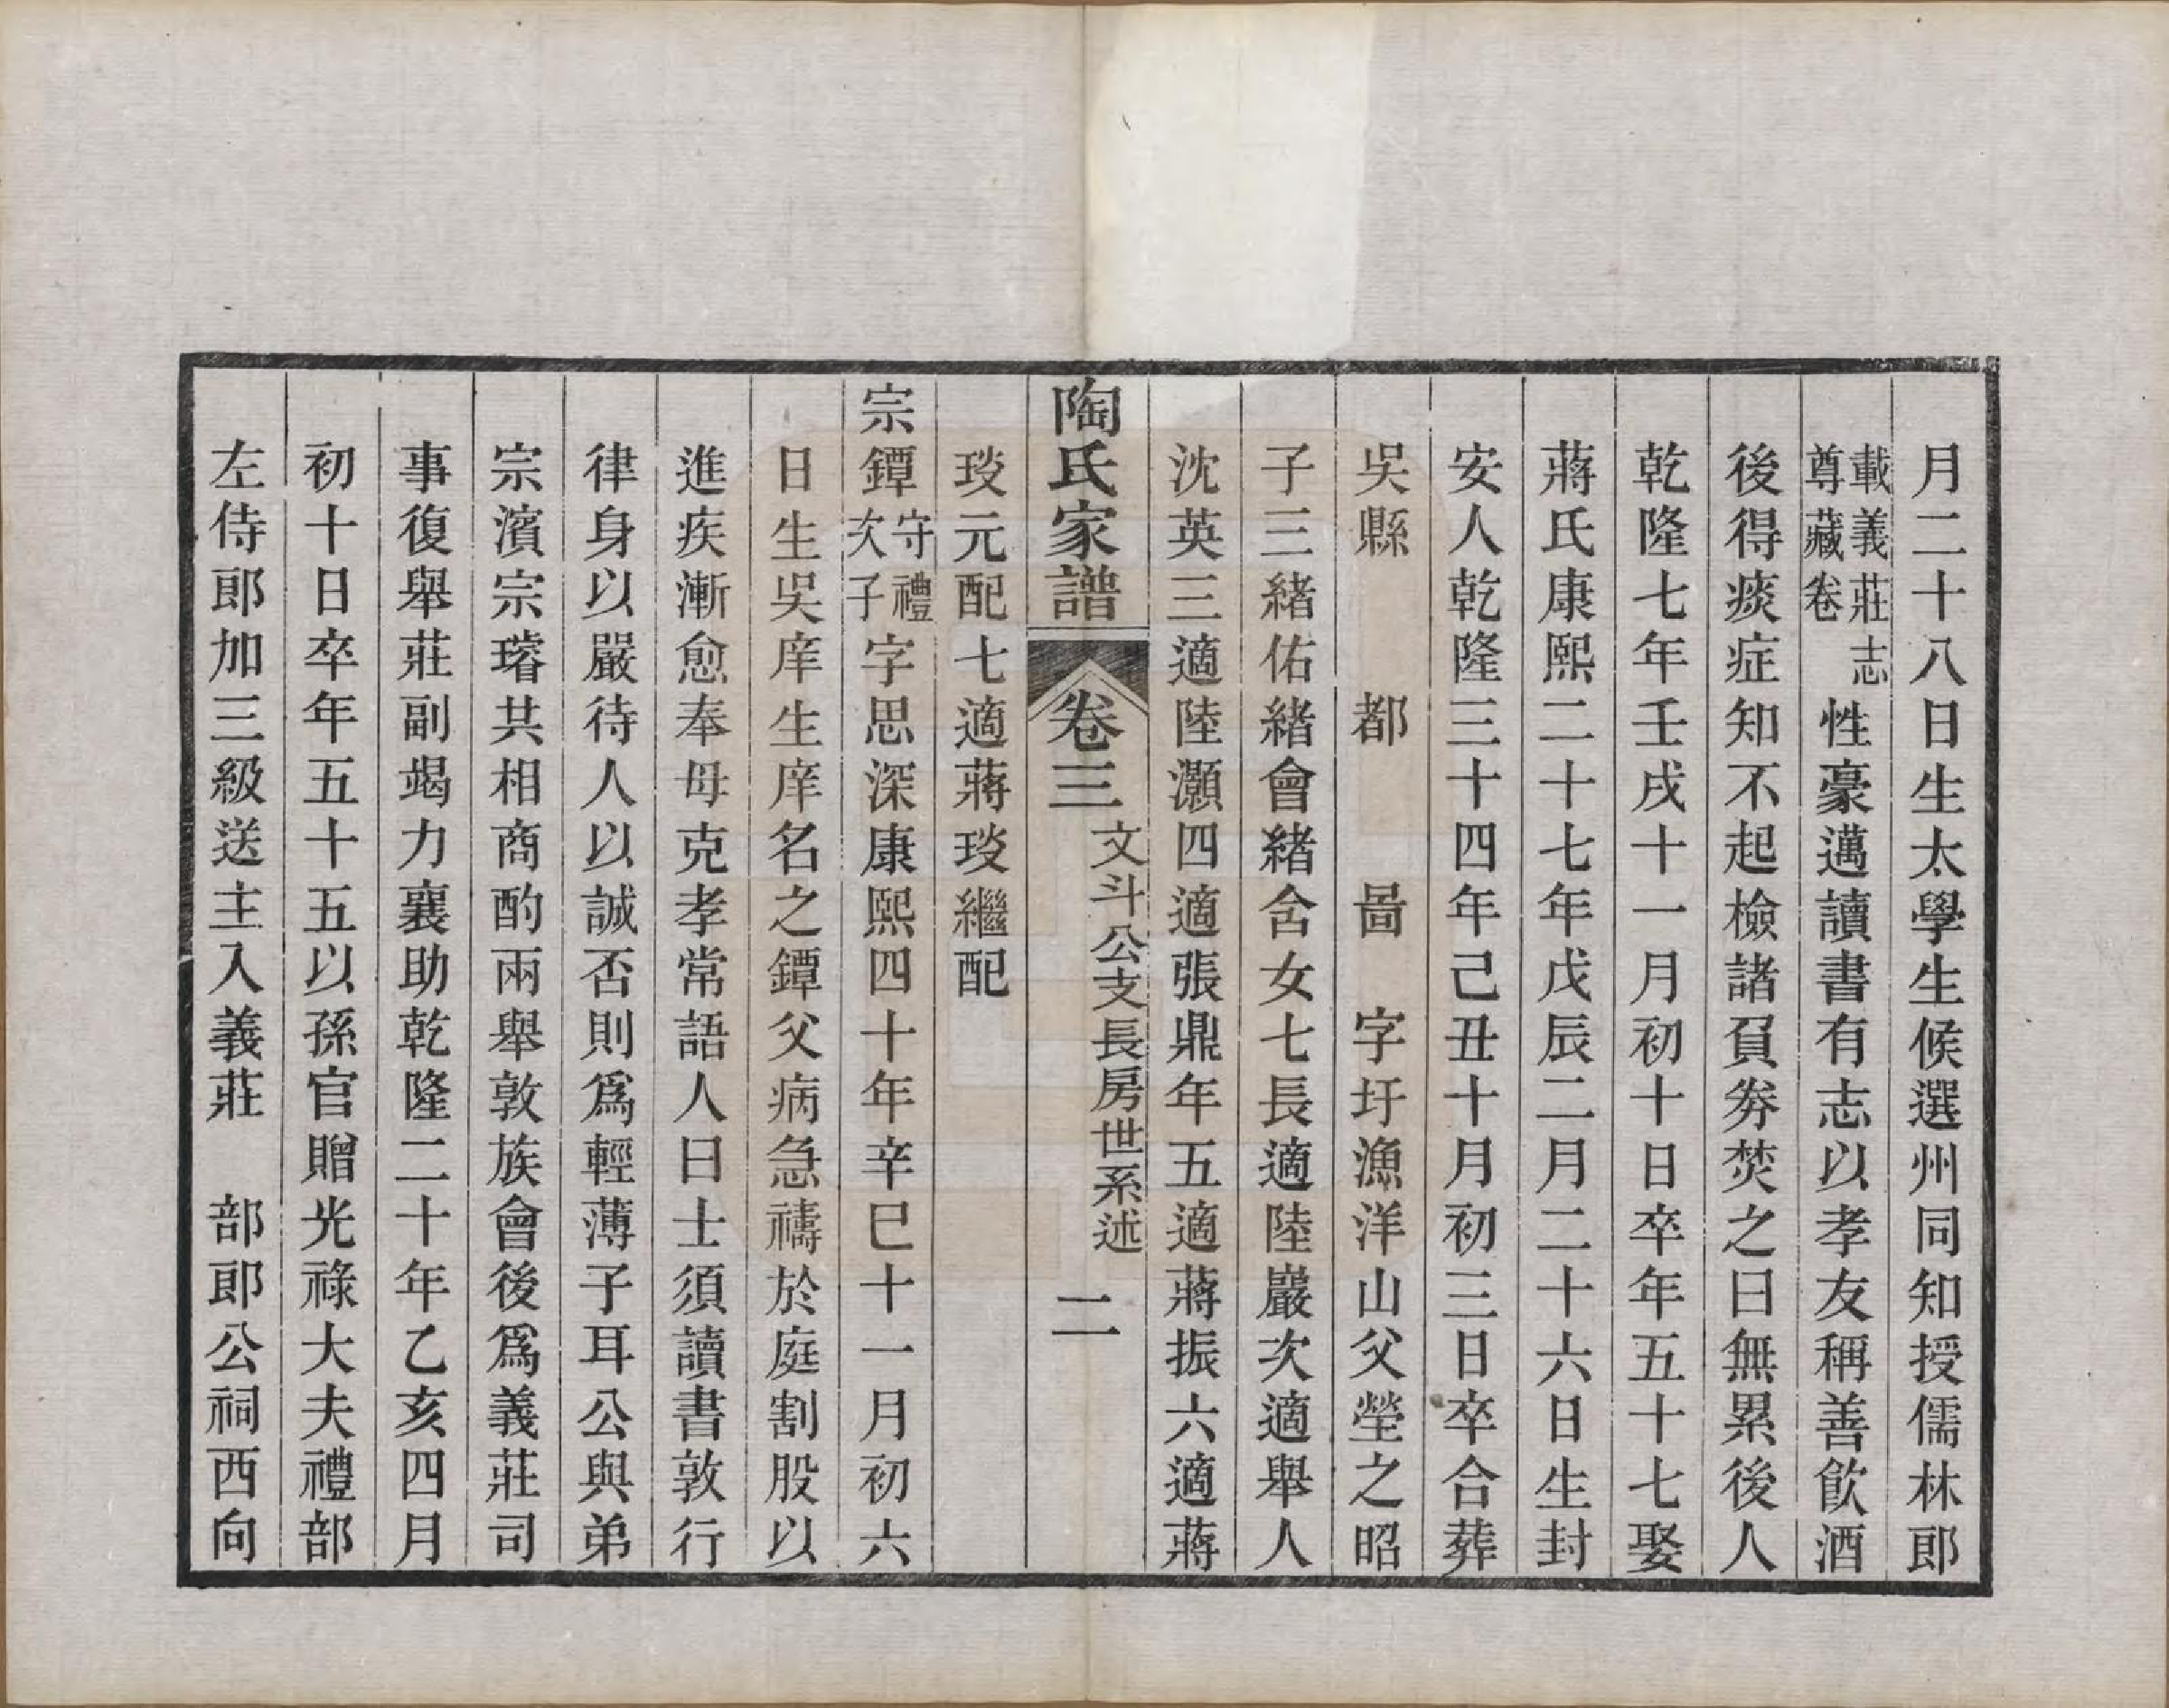 月二十八日生太學生候選州同知授儒林郎
載義莊志尊藏卷性豪邁讀書有志以孝友稱善飲酒
後得痰症知不起檢諸負券焚之曰無累後人
乾隆七年壬戌十一月初十日卒年五十七娶
蔣氏康熙二十七年戊辰二月二十六日生封
安人乾隆三十四年己丑十月初三日卒合葬
吳縣 都 啚 字圩漁洋山父塋之昭
子三緒佑緒會緒含女七長適陸嚴次適舉人
沈英三適陸灝四適張鼎年五適蔣振六適蔣
陶氏家譜 卷三 文斗公支長房世系述 二
琰元配七適蔣琰繼配
宗鐔守禮次子字思深康熙四十年辛巳十一月初六
日生吳庠生庠名之鐔父病急禱於庭割股以
進疾漸愈奉母克孝常語人曰士須讀書敦行
律身以嚴待人以誠否則爲輕薄子耳公與弟
宗濱宗璿共相商酌兩舉敦族會後爲義莊司
事復舉莊副竭力襄助乾隆二十年乙亥四月
初十日卒年五十五以孫官贈光祿大夫禮部
左侍郎加三級送主入義莊 部郎公祠西向